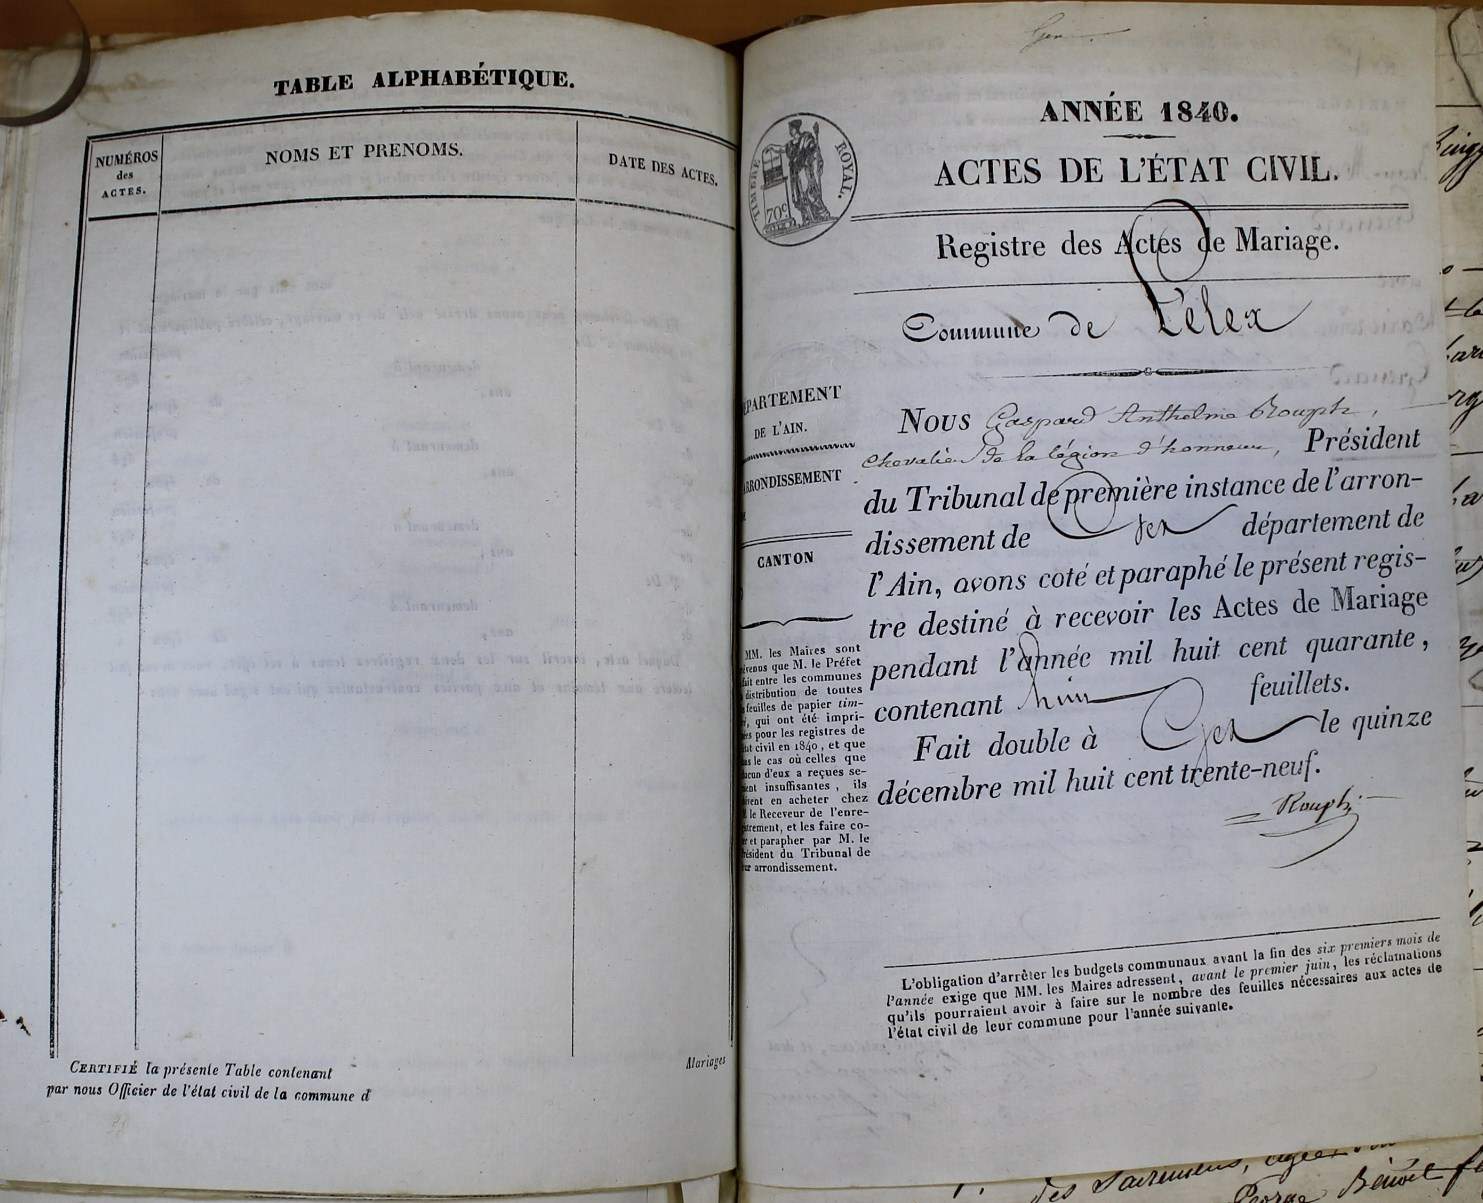 TABLE ALPHABÉTIQUE.
NUMÉROS
des
ACTES.
NOMS ET PRENOMS.
DATE DES ACTES.
CERTIFIÉ la présente Table contenant
par nous Officier de l'état civil de la commune d
Mariages
TIMBRE ROYAL.
70c
ANNÉE 1840.
ACTES DE L'ÉTAT CIVIL.
Registre des Actes de Mariage.
Commune de Lélex
ÉPARTEMENT
DE L'AIN.
RRONDISSEMENT
CANTON
MM. les Maires sont
évenus que M. le Préfet
fait entre les communes
distribution de toutes
feuilles de papier tim-
, qui ont été impri-
ées pour les registres de
état civil en 1840, et que
ns le cas où celles que
acun d'eux a reçues se-
ient insuffisantes, ils
ivent en acheter chez
le Receveur de l'enre-
strement, et les faire co-
er et parapher par M. le
résident du Tribunal de
ur arrondissement.
Nous Gaspard Anthelme Rouph,
chevalier de la légion d'honneur, Président
du Tribunal de première instance de l'arron-
dissement de Gex département de
l'Ain, avons coté et paraphé le présent regis-
tre destiné à recevoir les Actes de Mariage
pendant l'année mil huit cent quarante,
contenant huit feuillets.
Fait double à Gex le quinze
décembre mil huit cent trente-neuf.
Rouph
L'obligation d'arrêter les budgets communaux avant la fin des six premiers mois de
l'année exige que MM. les Maires adressent, avant le premier juin, les réclamations
qu'ils pourraient avoir à faire sur le nombre des feuilles nécessaires aux actes de
l'état civil de leur commune pour l'année suivante.
des
George Benoit